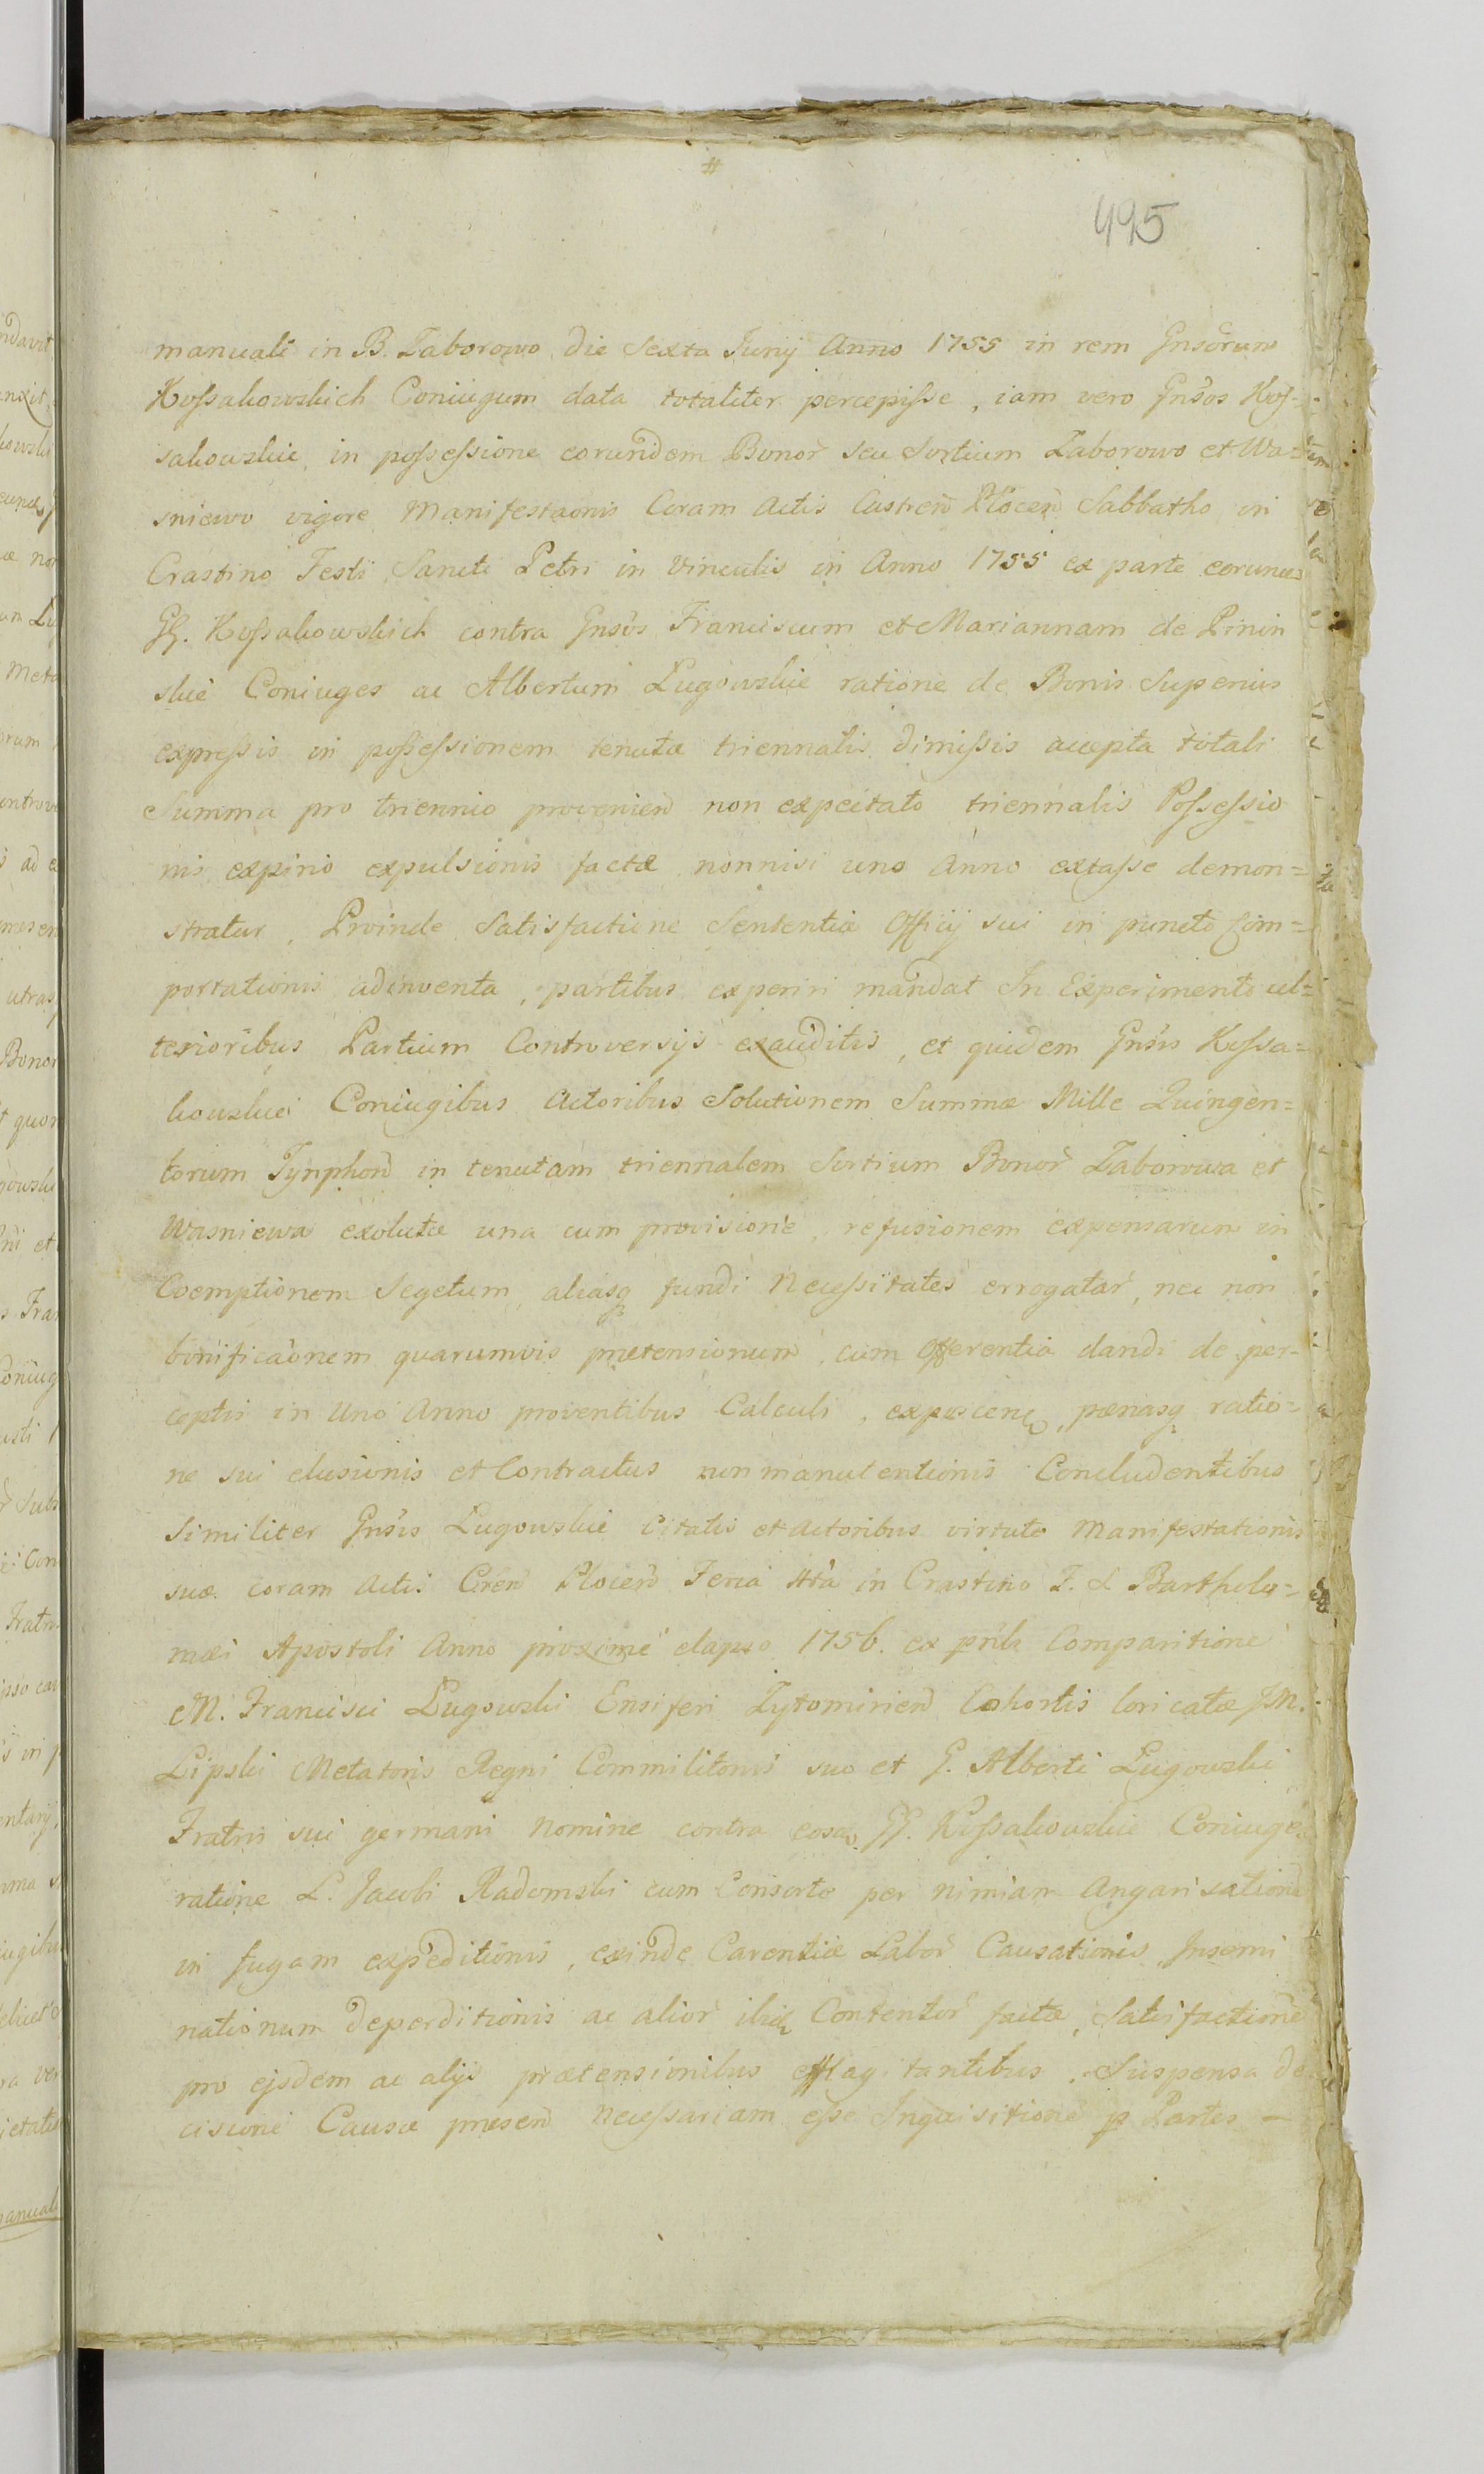 495
manuali in B. Zaborowo die Sexta Junij Anno 1755 in rem Gnsorum
Kossakowskich Coniugum data totaliter percepisse, iam vero Gnsos Kos-
sakowskie, in possessione eorundem Bonor seu Sortium Zaborowo et Wa-
sniewo vigore Manifestaonis Coram Actis Castren Plocen Sabbatho in
Crastino Festi Sancti Petri in Vinculis in Anno 1755 ex parte eorund
GG. Kossakowskich contra Gnsos Franciscum et Mariannam de Pinin
skie Coniuges ac Albertum Lugowskie ratione de Bonis Superius
expressis in possessionem tenutæ triennalis dimissis accepta totali
Summa pro triennio provenien non expectato triennalis Possessio
nis expirio expulsionis factæ nonnisi uno Anno extasse demon=
stratur, Proinde Satisfactione Sententiæ Officij sui in puncto Com=
portationis adinventa, partibus experiri mandat In Experimento ul=
terioribus Partium Controversijs exauditis, et quidem Gnsis Kossa=
kowskiei Coniugibus Actoribus Solutionem Summæ Mille Quingen=
torum Tynphon in tenutam triennalem Sortium Bonor Zaborowa et
Wasniewa exolutæ una cum provisione, refusionem expensarum in
Coemptionem Segetum, aliasq fundi Necessitates errogatar, nec non
bonificaonem quarumvis prætensionum, cum Offerentia dandi de per-
ceptis in Uno Anno proventibus Calculi, exposcen, pœnasq ratio=
ne sui elusionis et Contractus non manutentionis Concludentibus
Similiter Gnsis Lugowskie Citatis et Actoribus virtute Manifestationis
suæ coram Actis Cren Plocen Feria 4ta in Crastino F. S Bartholo=
mæi Apostoli Anno proxime elapso 1756. ex prsli Comparitione
M. Francisci Lugowski Ensiferi Zytomirien Cohortis loricatæ JM.
Lipski Metatoris Regni Commilitonis suo et G. Alberti Lugowski
Fratris sui germani Nomine contra eosd GG. Kossakowskie Coniuge
ratione L. Jacobi Radomski cum Consorte per nimiam Angarisatione
in fugam expeditionis, exinde Carentiæ Labor Causationis Insemi
nationum deperditionis ac alior ibid Contentor factæ, Satisfactione
pro ejsdem ac alijs prætensionibus efflagitantibus. Suspensa de
cisione Causæ præsen necessariam esse Inquisitione p Partes –